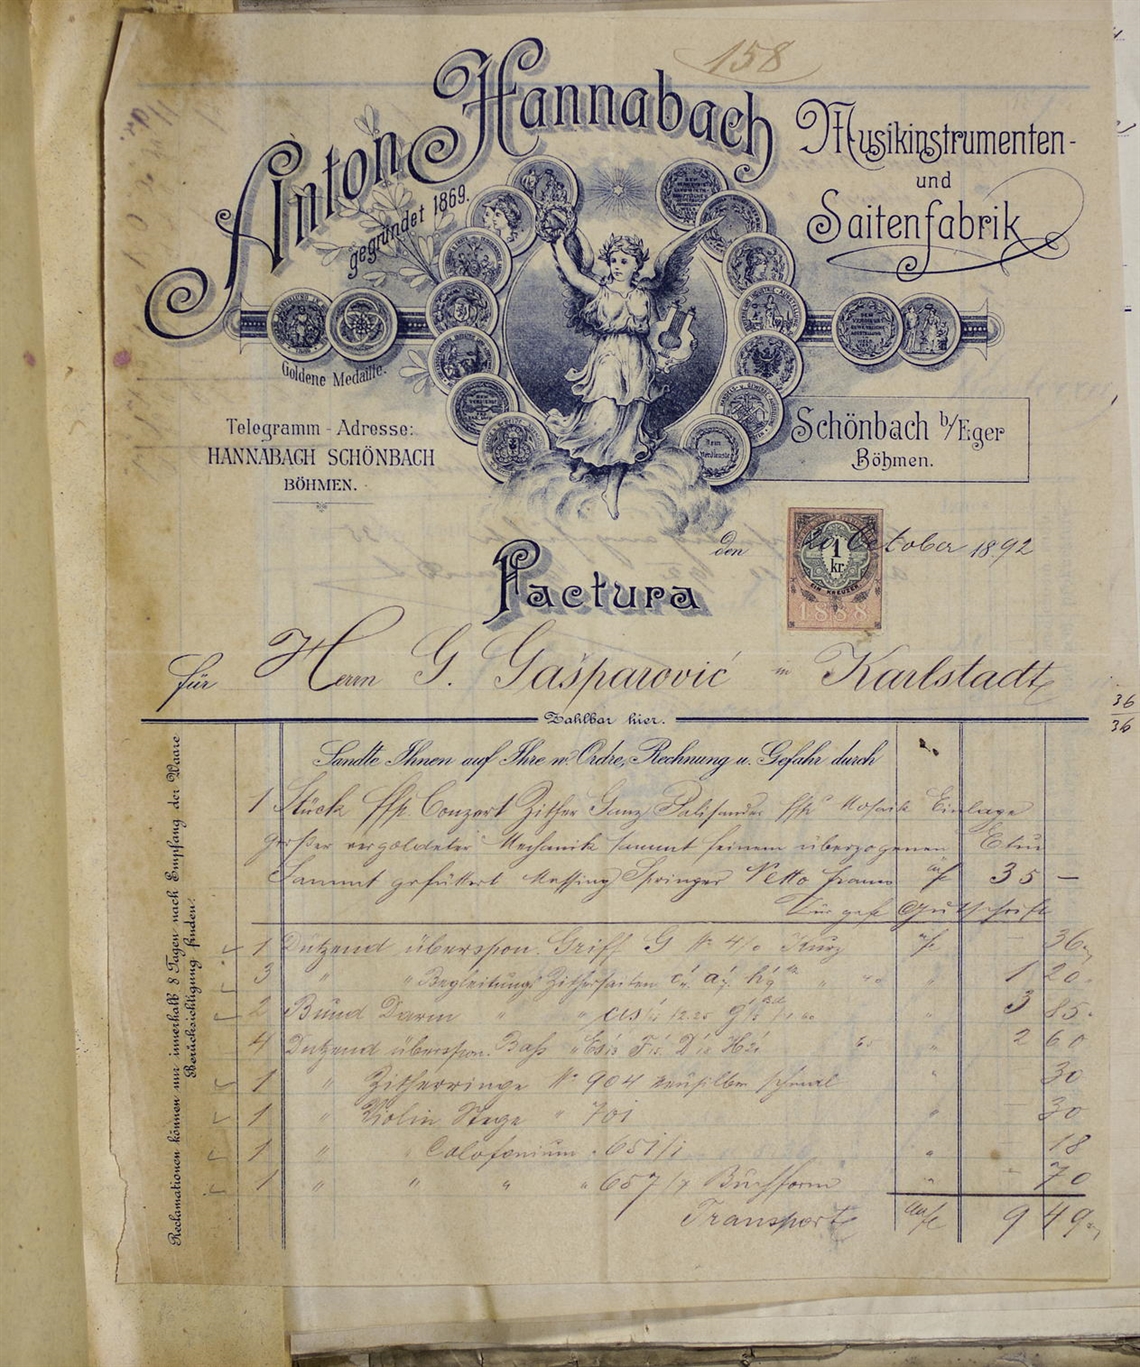 158
Anton Hannabach
gegründet 1869.
Musikinstrumenten-
und
Saitenfabrik
Goldene Medaille.
Telegramm-Adresse:
HANNABACH SCHÖNBACH
BÖHMEN.
Schönbach b/Eger
Böhmen.
Dem Verdienste
den October 1892
1 kr.
EIN KREUZER
1888
Factura
für Herrn G. Gašparović in Karlstadt
Zahlbar hier.
36
36
Reclamationen können nur innerhalb 8 Tagen nach Empfang der Waare
Berücksichtigung finden.
Sandte Ihnen auf Ihre w. Ordre, Rechnung u. Gefahr durch
1 Stück ffp. Conzert Zither Ganz Palisander Mosaik Einlage
großer vergoldeter Mechanik sammt feinem überzogenen Etui
Sammt gefüttert Messing Springer Netto franco 35 —
Zur gefl Gutschrift
1 Dutzend überspon. Griff G No 4/0 Kurz 36
3 " " Begleitungs Zithersaiten " 1 20
2 Bund Darm " " " 3 85
4 Dutzend überspon. Bass " Es Fis Dis " 2 60
1 " Zitherringe No 904 neusilber schmal " 30
1 " Violin Stege " 701 " 30
1 " " Colofonium " 651/1 " 18
1 " " " " 657/7 Buchform " 70
Transport 9 49